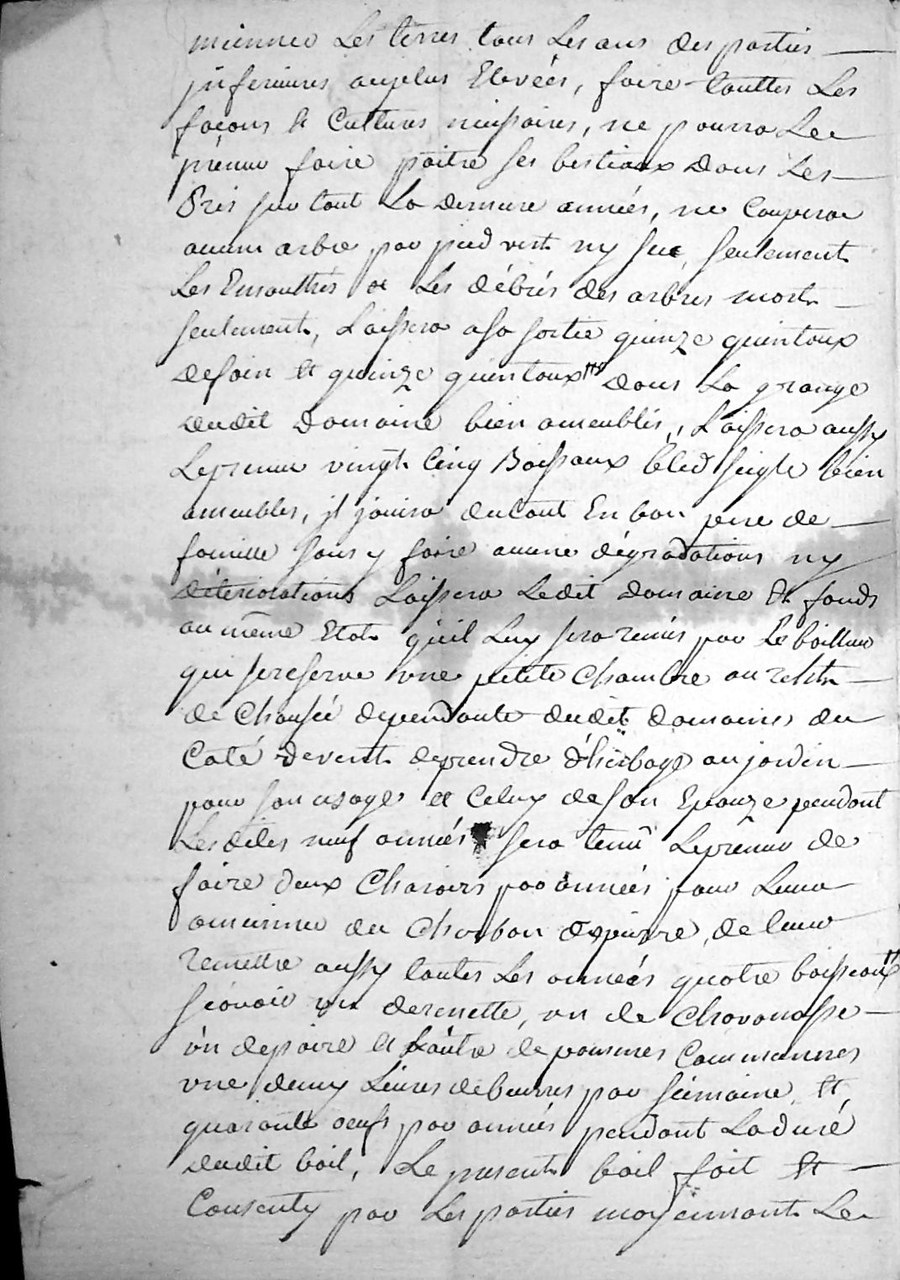 Les terres tous Les ans des parties
inferieures auplus Elevées, faire touttes Les
façons & Cultures necissaires, ne pourra Le
preneur faire paitre ses bestiaux dans Les
Prés sur tout La derniere années, ne Couperae
aucun arbre par pied vert ny sec, seulement
Les Emouthés et Les débrés des arbres morts
seulement, Laissera asa sortie quinze quintaux
defoin Et quinze quintaux dans La grange
dudit domaine bien ameublés, Laissera aussy
Lepreneur vingt Cinq Boissaux bled seigle bien
ameubles, jl jouira dutout En bon pere de
famille sans y faire aucune dégradations ny
déteriorations Laissera Ledit domaine & fonds
au même Etat quil Luy sera remis par Le bailleur
qui sereserve une petite Chambre au
de Chausée dependante dudit domaines du
Coté devent deprendre d'herbage aujardin
pour son usage et Celuy deson Epouze pendant
Lesdites neuf années sera tenu Lepreneur de
faire deux Charois par années pour Leur
amenner du Charbon depierre, de leur
remettre aussy toutes Les années quatre boisseaux
scavoir un derenette, un de
un depoire & Lautre depommes Communes
une demy Livres debeurres par semaine, Et
quarante oeufs par années pendant Laduré
dudit bail, Le present bail fait Et
Consenty par Les parties moyennant Le